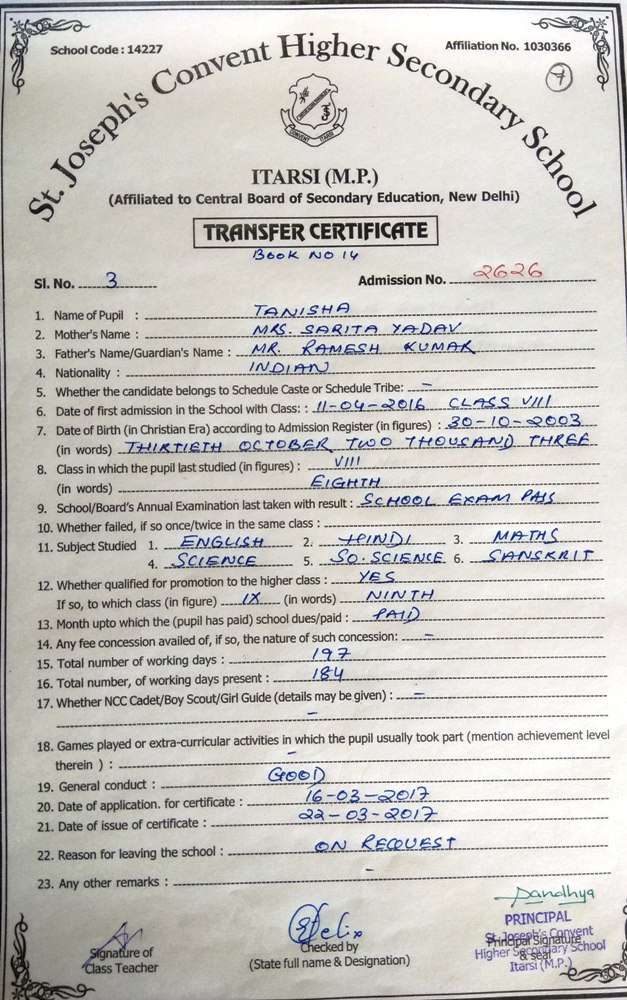 School Code : 14227
Affiliation No. 1030366
7
St. Joseph's Convent Higher Secondary School
ITARSI (M.P.)
(Affiliated to Central Board of Secondary Education, New Delhi)
TRANSFER CERTIFICATE
BOOK NO 14
Sl. No. 3 Admission No. 2626
1. Name of Pupil : TANISHA
2. Mother's Name : MRS. SARITA YADAV
3. Father's Name/Guardian's Name : MR. RAMESH KUMAR
4. Nationality : INDIAN
5. Whether the candidate belongs to Schedule Caste or Schedule Tribe: –
6. Date of first admission in the School with Class : 11-04-2016 CLASS VIII
7. Date of Birth (in Christian Era) according to Admission Register (in figures) : 30-10-2003
(in words) THIRTIETH OCTOBER TWO THOUSAND THREE
8. Class in which the pupil last studied (in figures) : VIII
(in words) EIGHTH
9. School/Board's Annual Examination last taken with result : SCHOOL EXAM PASS
10. Whether failed, if so once/twice in the same class :
11. Subject Studied 1. ENGLISH 2. HINDI 3. MATHS
4. SCIENCE 5. SO. SCIENCE 6. SANSKRIT
12. Whether qualified for promotion to the higher class : YES
If so, to which class (in figure) IX (in words) NINTH
13. Month upto which the (pupil has paid) school dues/paid : PAID
14. Any fee concession availed of, if so, the nature of such concession: –
15. Total number of working days : 197
16. Total number, of working days present : 184
17. Whether NCC Cadet/Boy Scout/Girl Guide (details may be given) : –
–
18. Games played or extra-curricular activities in which the pupil usually took part (mention achievement level
therein ) : –
19. General conduct : GOOD
20. Date of application. for certificate : 16-03-2017
21. Date of issue of certificate : 22-03-2017
22. Reason for leaving the school : ON REQUEST
23. Any other remarks : –
PRINCIPAL
St. Joseph's Convent
Higher Secondary School
Itarsi (M.P.)
Signature of
Class Teacher
Checked by
(State full name & Designation)
Principal Signature
& seal